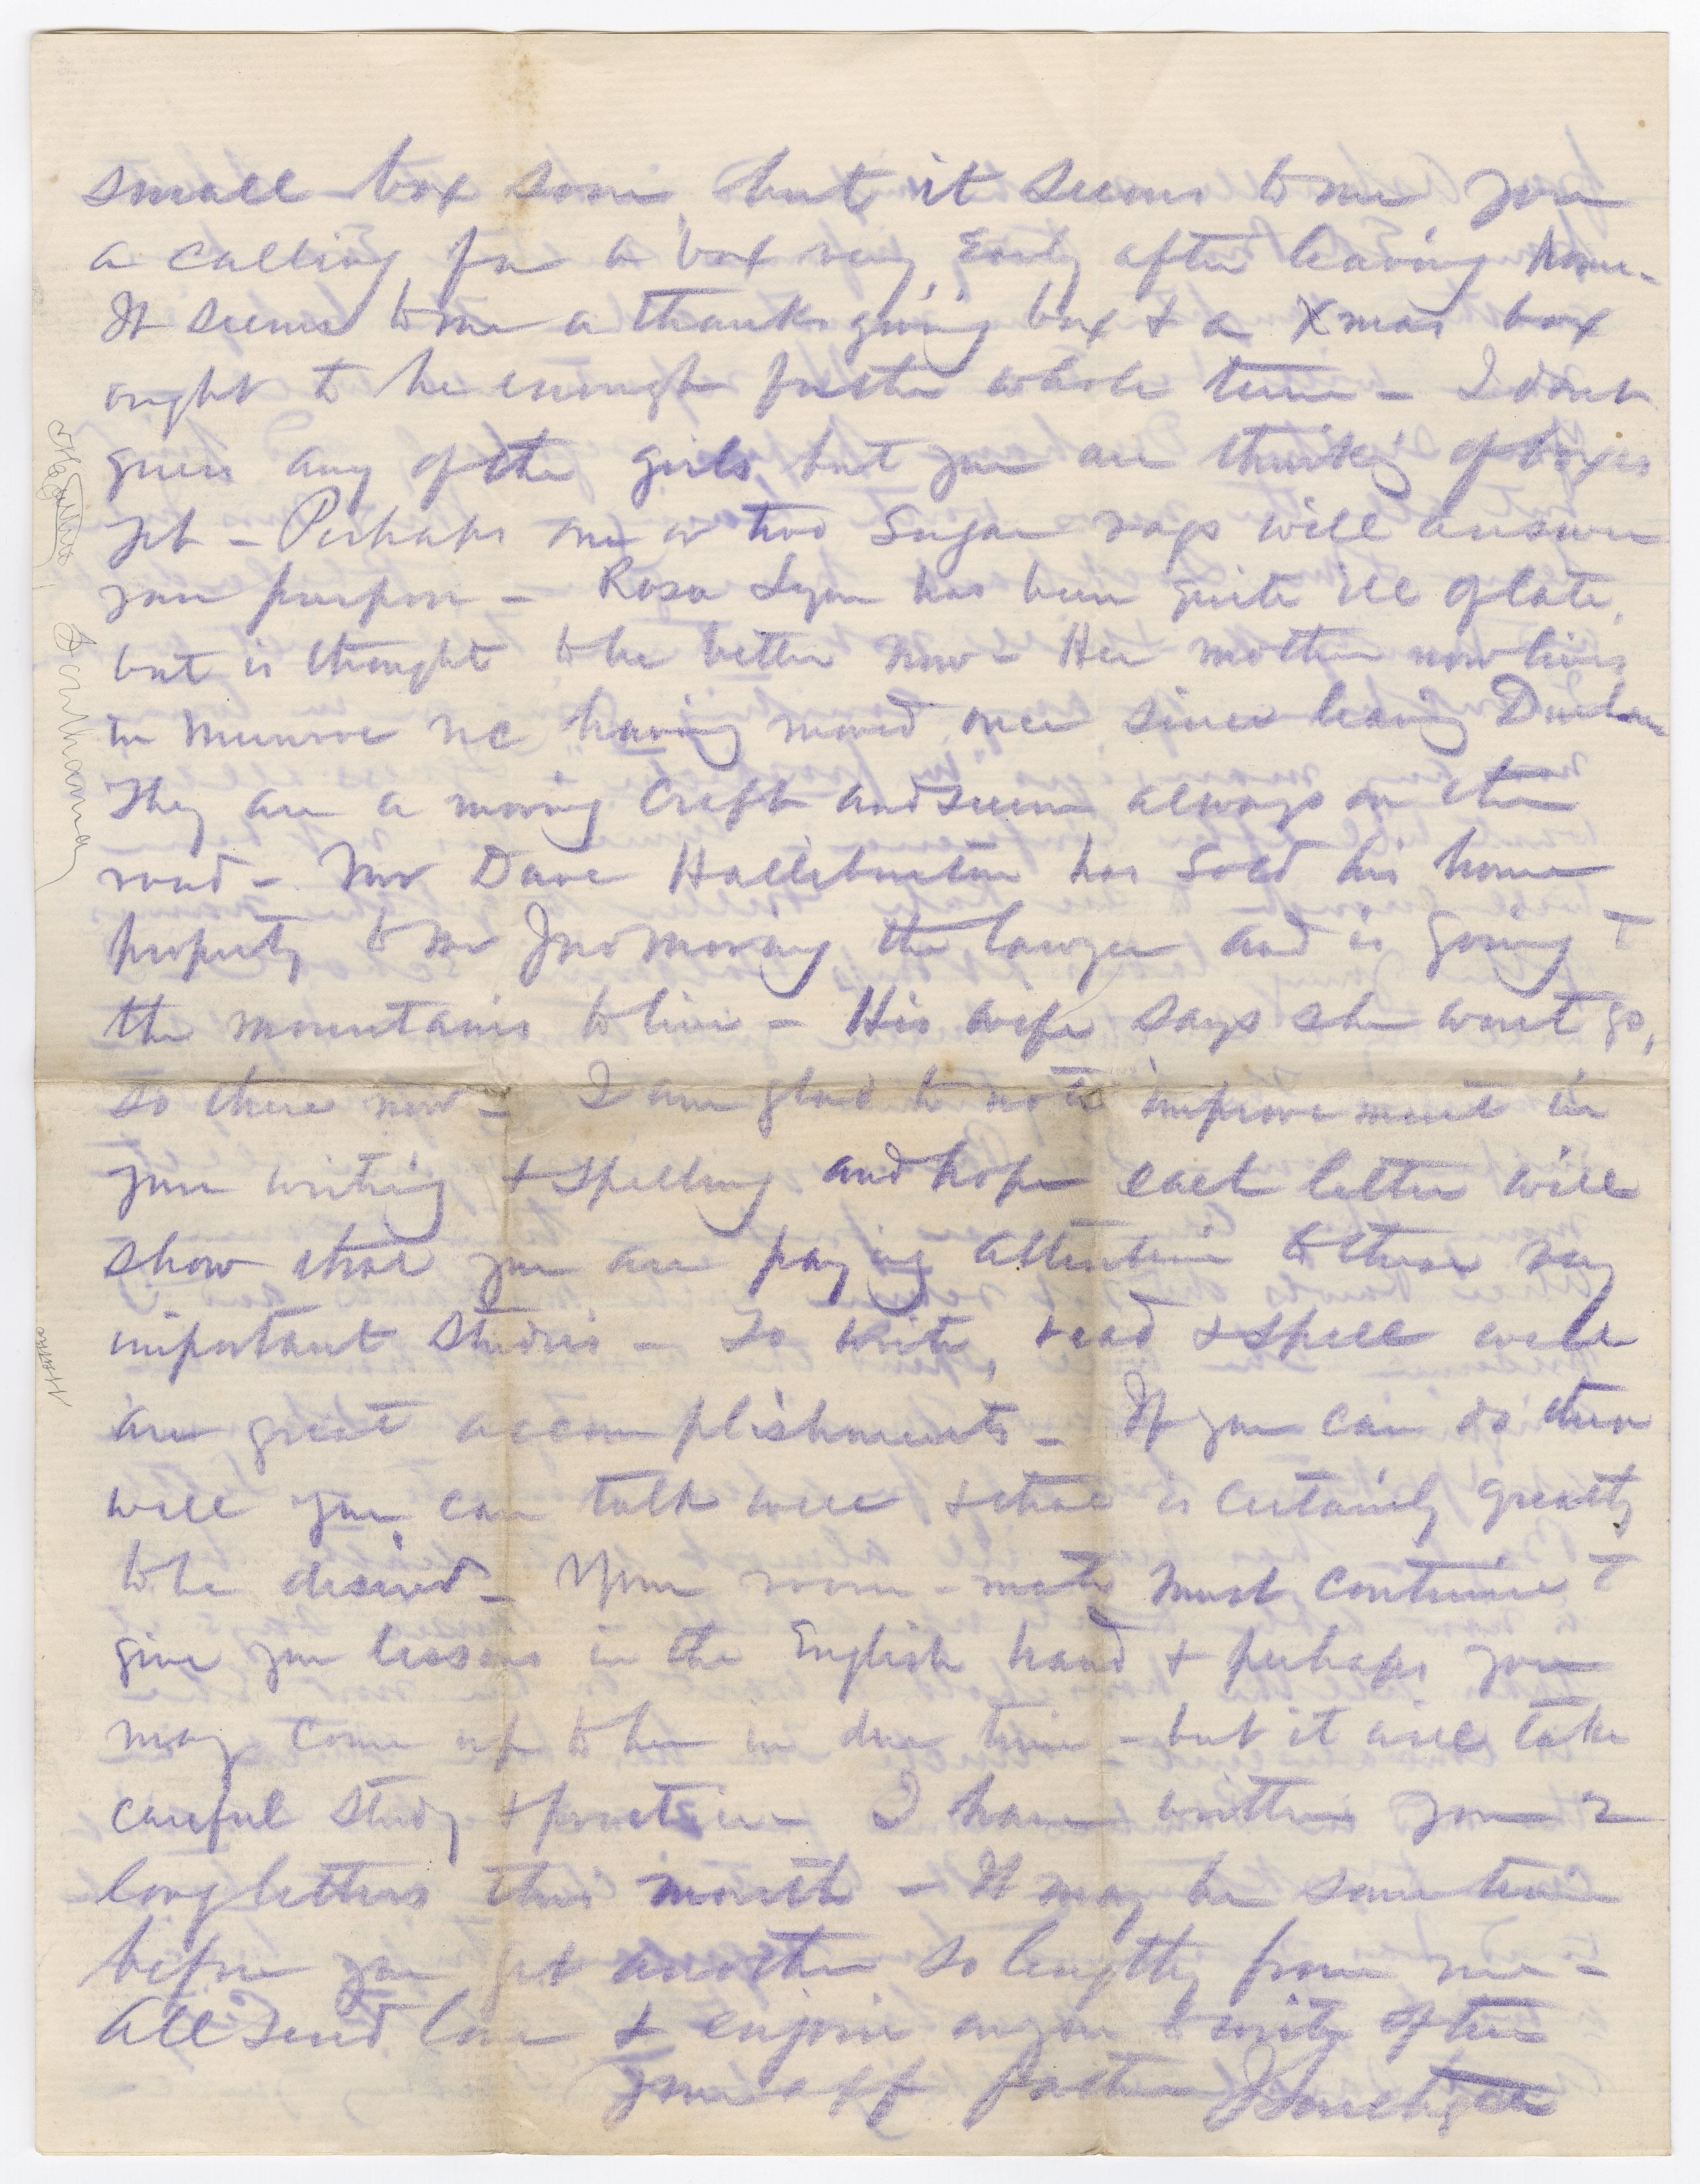 small box soon, but it seems to me you
a calling for a box very Early after leaving home -
It seems to me a thanksgiving box & a Xmas box
ought to be enough for the whole term - I dont
guess any of the girls, but you are thinking of boxes
yet - Perhaps one or two Sugar rags will answer
your purpose - Rosa Lyon has been quite ill of late,
but is thought to be better now - Her mother now lives
in Munroe NC having moved once since leaving Durham
They are a moving Craft and seem always on the
road - Mr Dave Halliburton has sold his home
property to Mr Jno Moring the lawyer and is going to
the mountains to live - His wife says she wont go,
so there now - I am glad to note improvement in
your writing & spelling and hope each letter will
show that you are paying attention to these very
important studies - To write, read & spell well
are great accomplishments - If you can do these
well you can talk well & that is certainly greatly
to be desired - Your room-mate must continue to
give you lessons in the English hand & perhaps you
may come up to her in due time - but it will take
careful study & practice I have written you 2
long letters this month - It may be some time
before you get another so lengthy from me -
All send love & enjoin on you to write often
Your aff father J Southgate